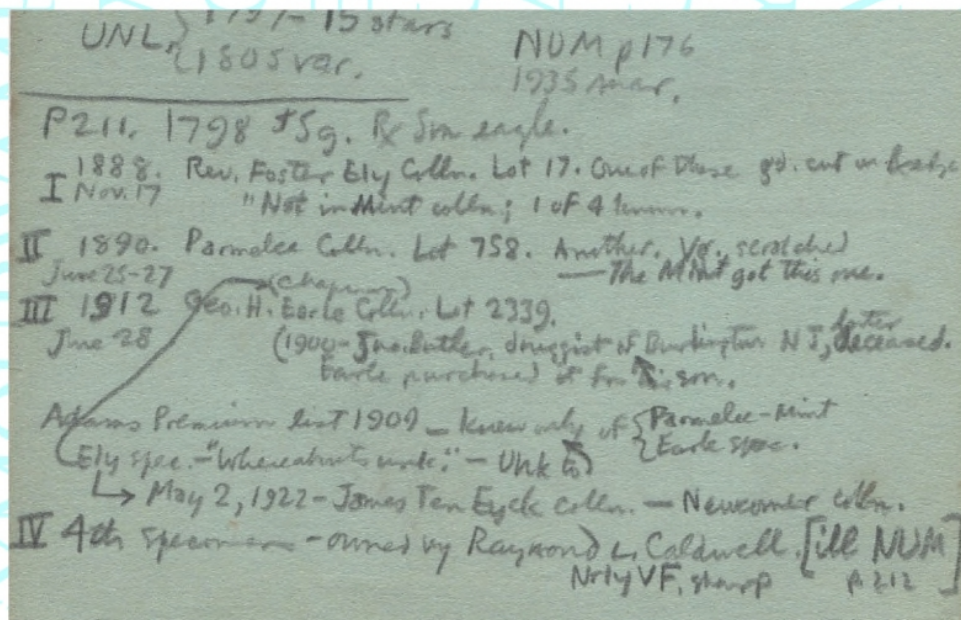 1797 - 15 stars
UNL, { 1805 var.
NUM p176
1935 mar.
P211. 1798 $5g. Rx Sm eagle.
I 1888. Nov. 17 Rev. Foster Ely Colln. Lot 17. One of these gd. cut in
"Not in Mint colln; 1 of 4 known.
II 1890. Parmelee Colln. Lot 758. Another. Vg. scratched
June 25-27 — The Mint got this one.
(Chapman)
III 1912 Geo. H. Earle Colln. Lot 2339.
June 28 (1900 - Jno. Butler, druggist of Burlington NJ, later deceased.
Earle purchased it fm his son.
Adams Premium list 1909 — knew only of { Parmelee - Mint
{ Earle spec.
Ely spec. - "Whereabouts unk." - Unk to
↳ May 2, 1922 - James Ten Eyck colln. — Newcomer colln.
IV 4th specimen - owned by Raymond L. Caldwell. [ill NUM
Nrly VF, sharp p. 212]